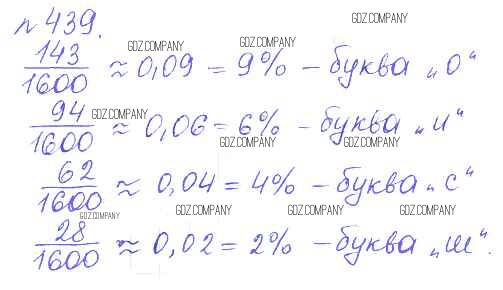 № 439.
GDZ.COMPANY
143/1600 ≈ 0,09 = 9% – буква „о“
GDZ.COMPANY GDZ.COMPANY
94/1600 ≈ 0,06 = 6% – буква „и“
GDZ.COMPANY
GDZ.COMPANY GDZ.COMPANY
62/1600 ≈ 0,04 = 4% – буква „с“
GDZ.COMPANY GDZ.COMPANY GDZ.COMPANY GDZ.COMPANY
28/1600 ≈ 0,02 = 2% – буква „ш“.